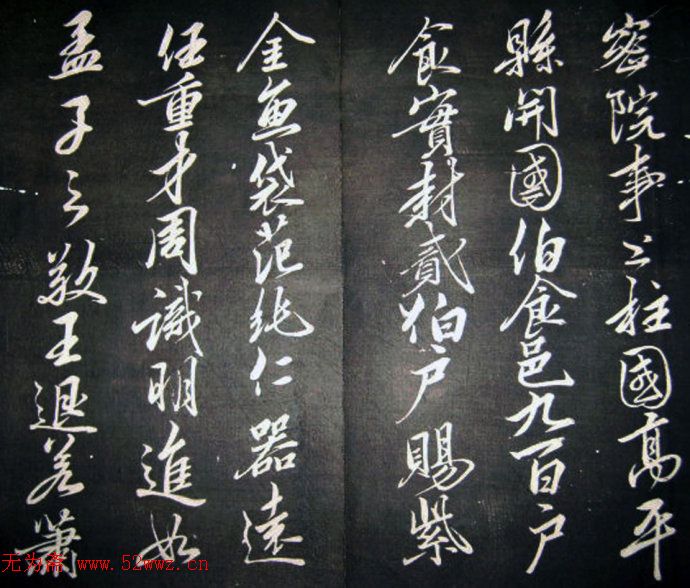 密院事上柱國高平
縣開國伯食邑九百户
食實封貳伯户賜紫
金魚袋范純仁器遠
任重才周識明進如
孟子之敬王退若蕭
无为斋 www.52wwz.cn